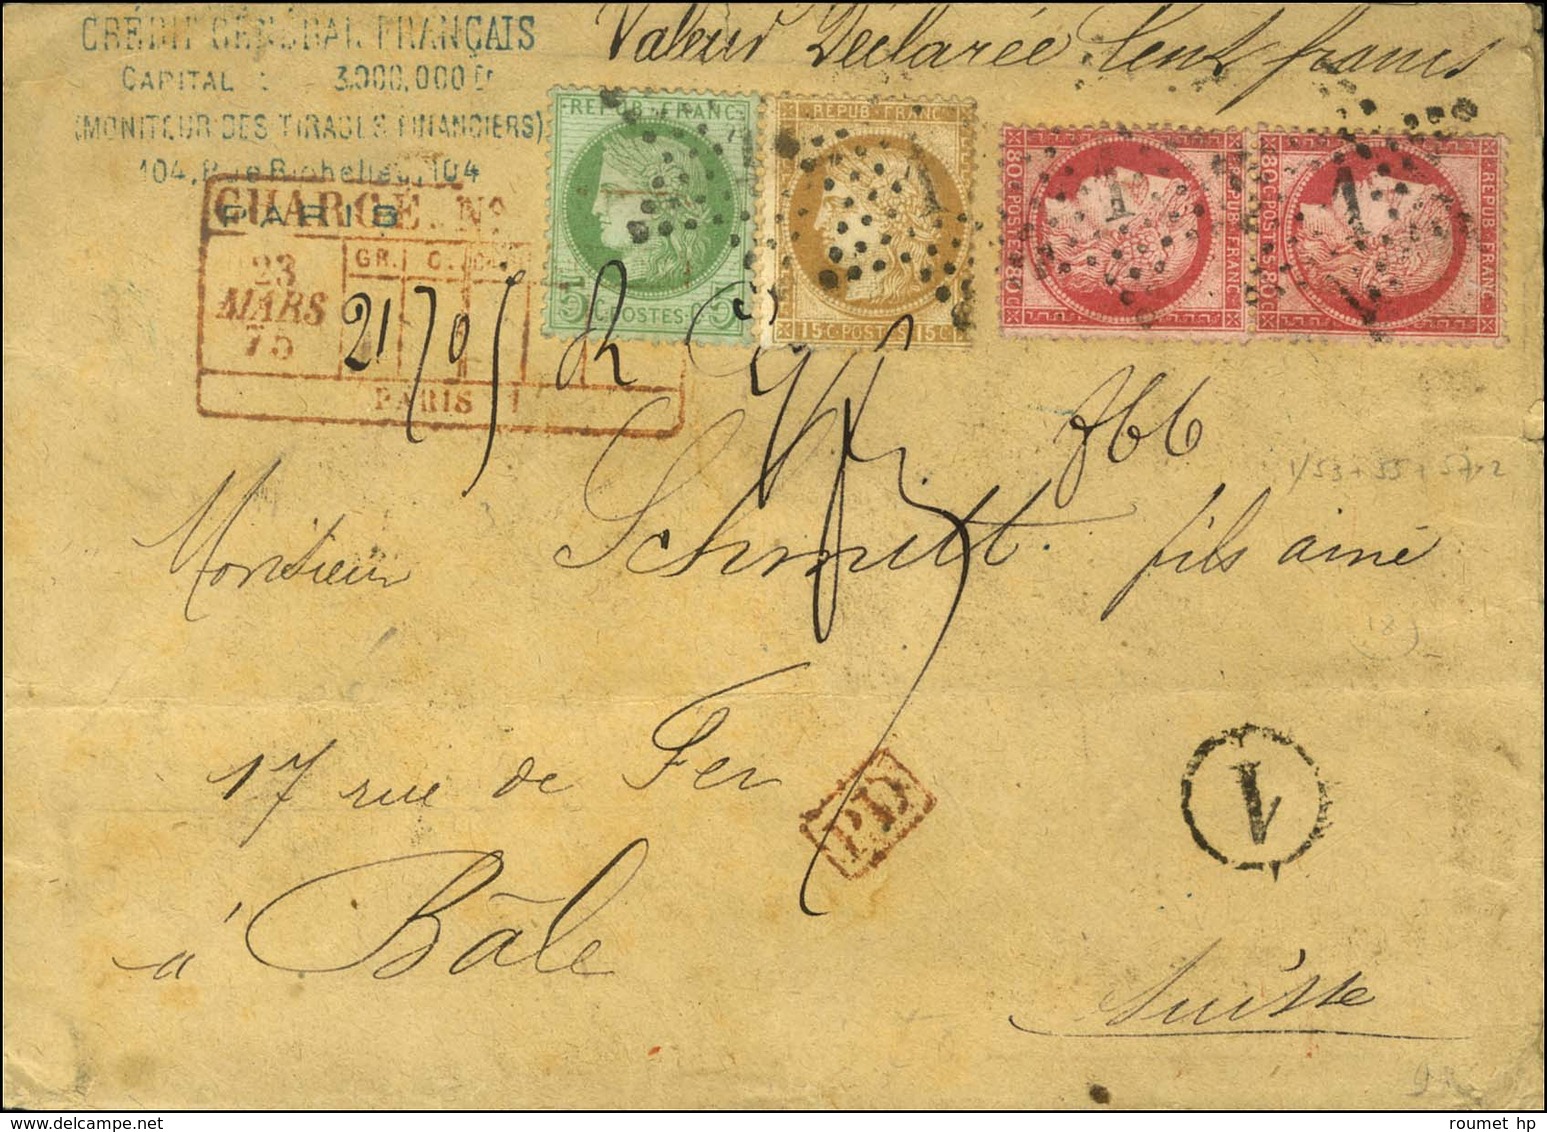 Valeur Déclarée Cent francs
CRÉDIT GÉNÉRAL FRANÇAIS
CAPITAL : 3.000,000 Fr
(MONITEUR DES TIRAGES FINANCIERS)
104, Rue Richelieu, 104
PARIS
CHARGE. No
23
MARS
75
GR. C.
PARIS 1
REPUB FRANC
5 C POSTES 5
REPUB FRANC
15 C. POSTES 15 C.
REPUB FRANC
80 C POSTES 80
REPUB FRANC
80 C POSTES 80
1
1
1
21705 R
766
1/53+55+57x2
Monsieur Schmitt fils ainé
17 rue de Fer
P.D.
1
à Bâle
Suisse
roumet hp